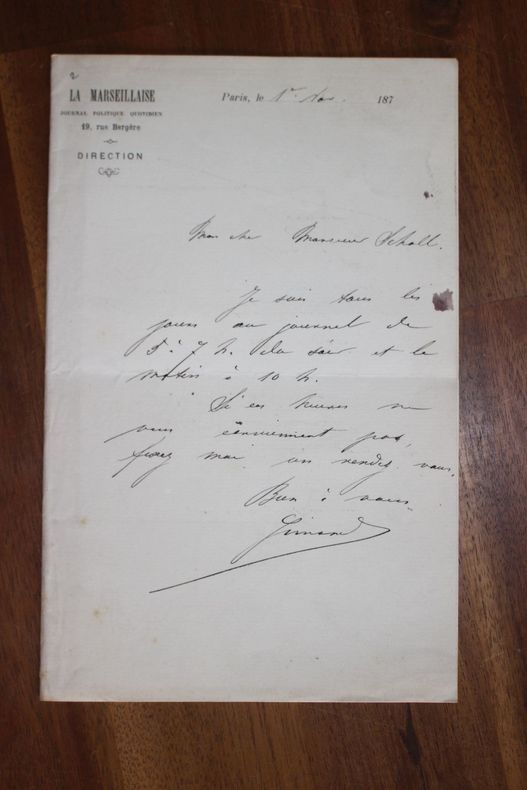 2
LA MARSEILLAISE
JOURNAL POLITIQUE QUOTIDIEN
19, rue Bergère
DIRECTION
Paris, le 1er Nov. 187
Mon cher Monsieur Scholl.
Je suis tous les
jours au journal de
5 à 7 h. du soir et le
matin à 10 h.
Si ces heures ne
vous conviennent pas,
fixez moi un rendez vous.
Bien à vous